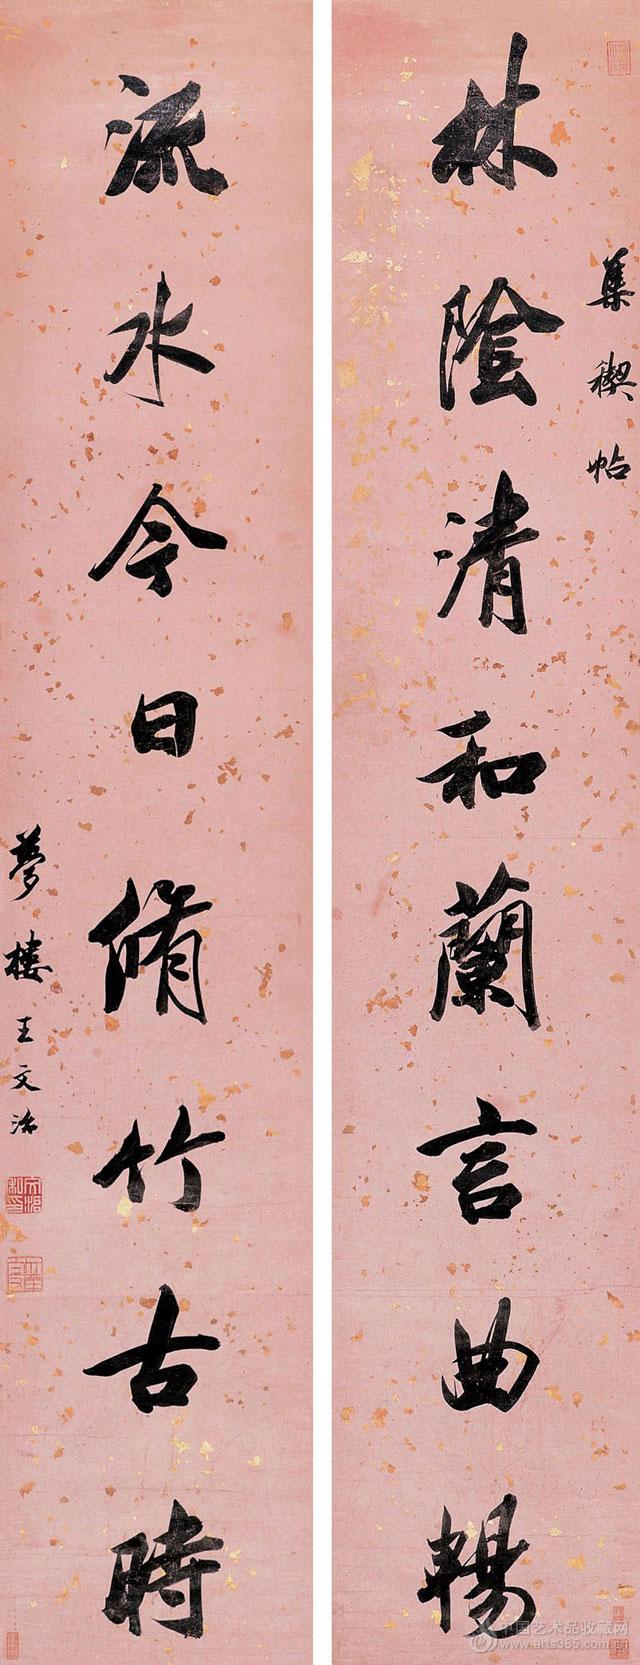 集禊帖
林陰清和蘭言曲暢
流水今日脩竹古時
夢樓王文治
中国艺术品收藏网
www.arts365.com.cn